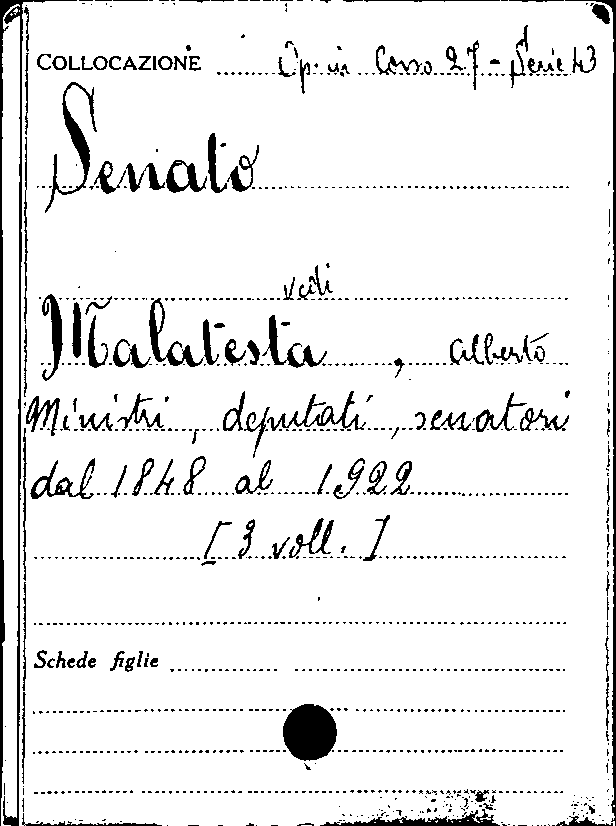 COLLOCAZIONE Op. in Corso 27 - Serie 43
Senato
vedi
Malatesta, Alberto
Ministri, deputati, senatori
dal 1848 al 1922
[3 voll.]
Schede figlie